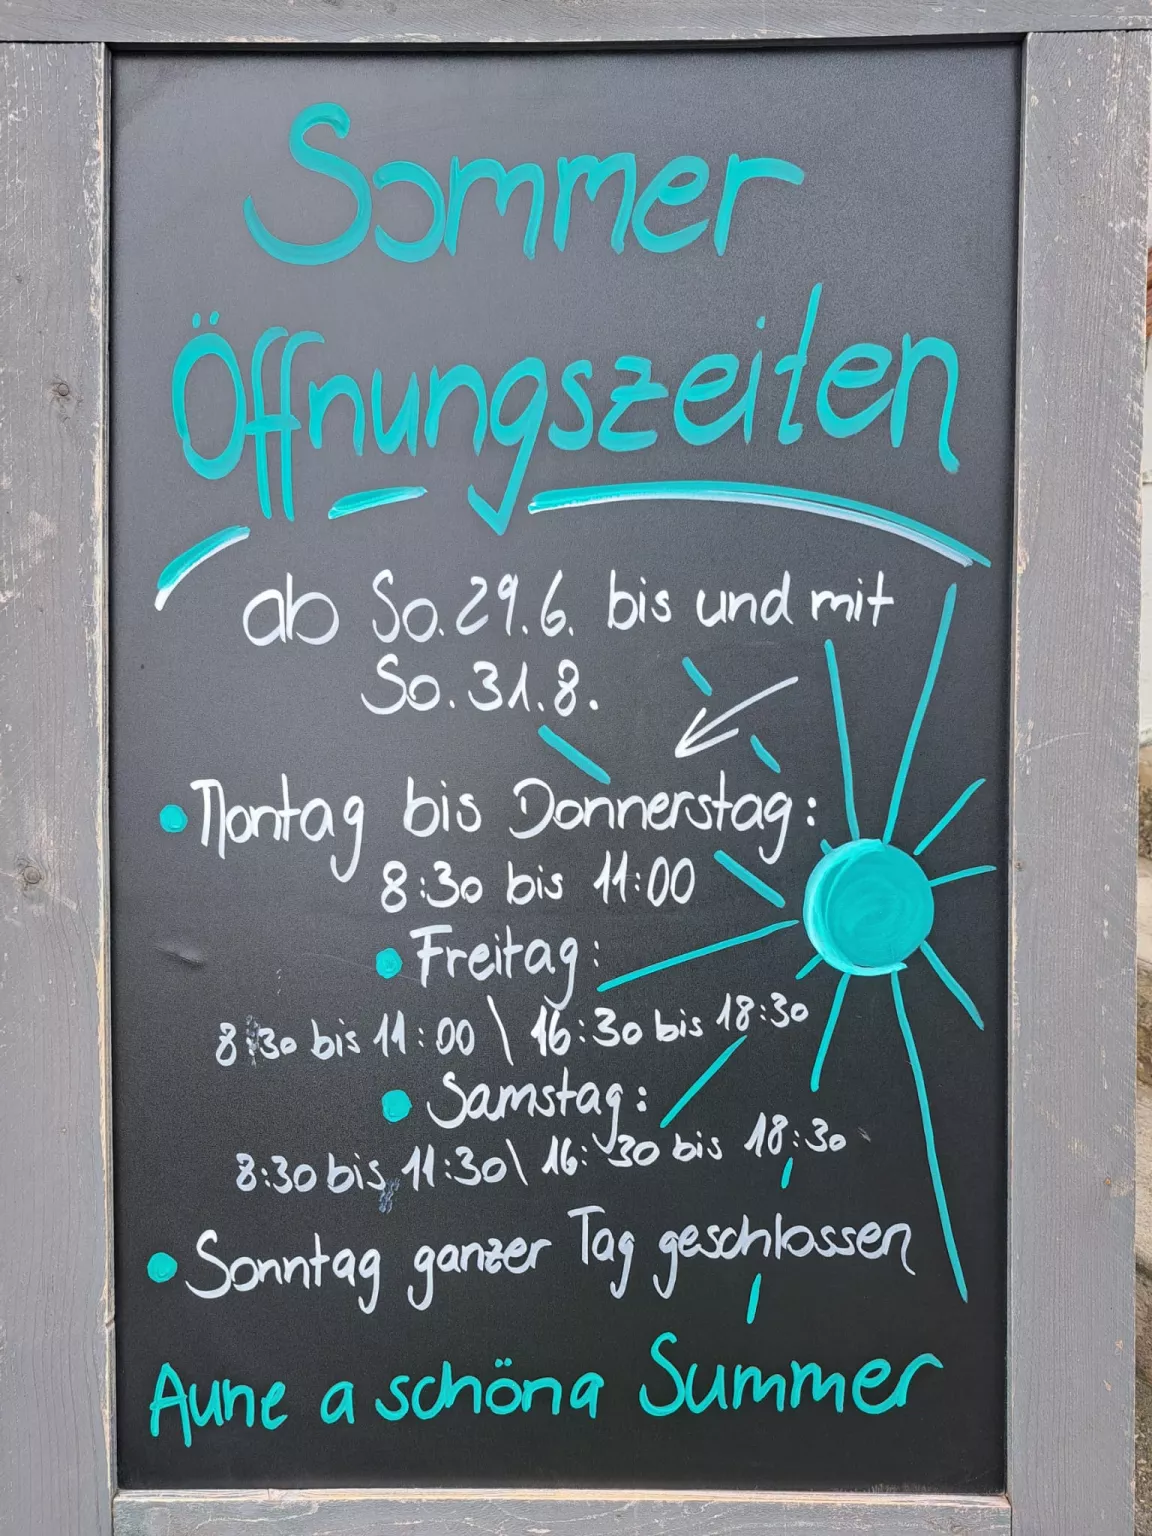 Sommer
Öffnungszeiten
ab So. 29.6. bis und mit
So. 31.8.
Montag bis Donnerstag:
8:30 bis 11:00
Freitag:
8:30 bis 11:00 \ 16:30 bis 18:30
Samstag:
8:30 bis 11:30 \ 16:30 bis 18:30
Sonntag ganzer Tag geschlossen
Aune a schöna Summer